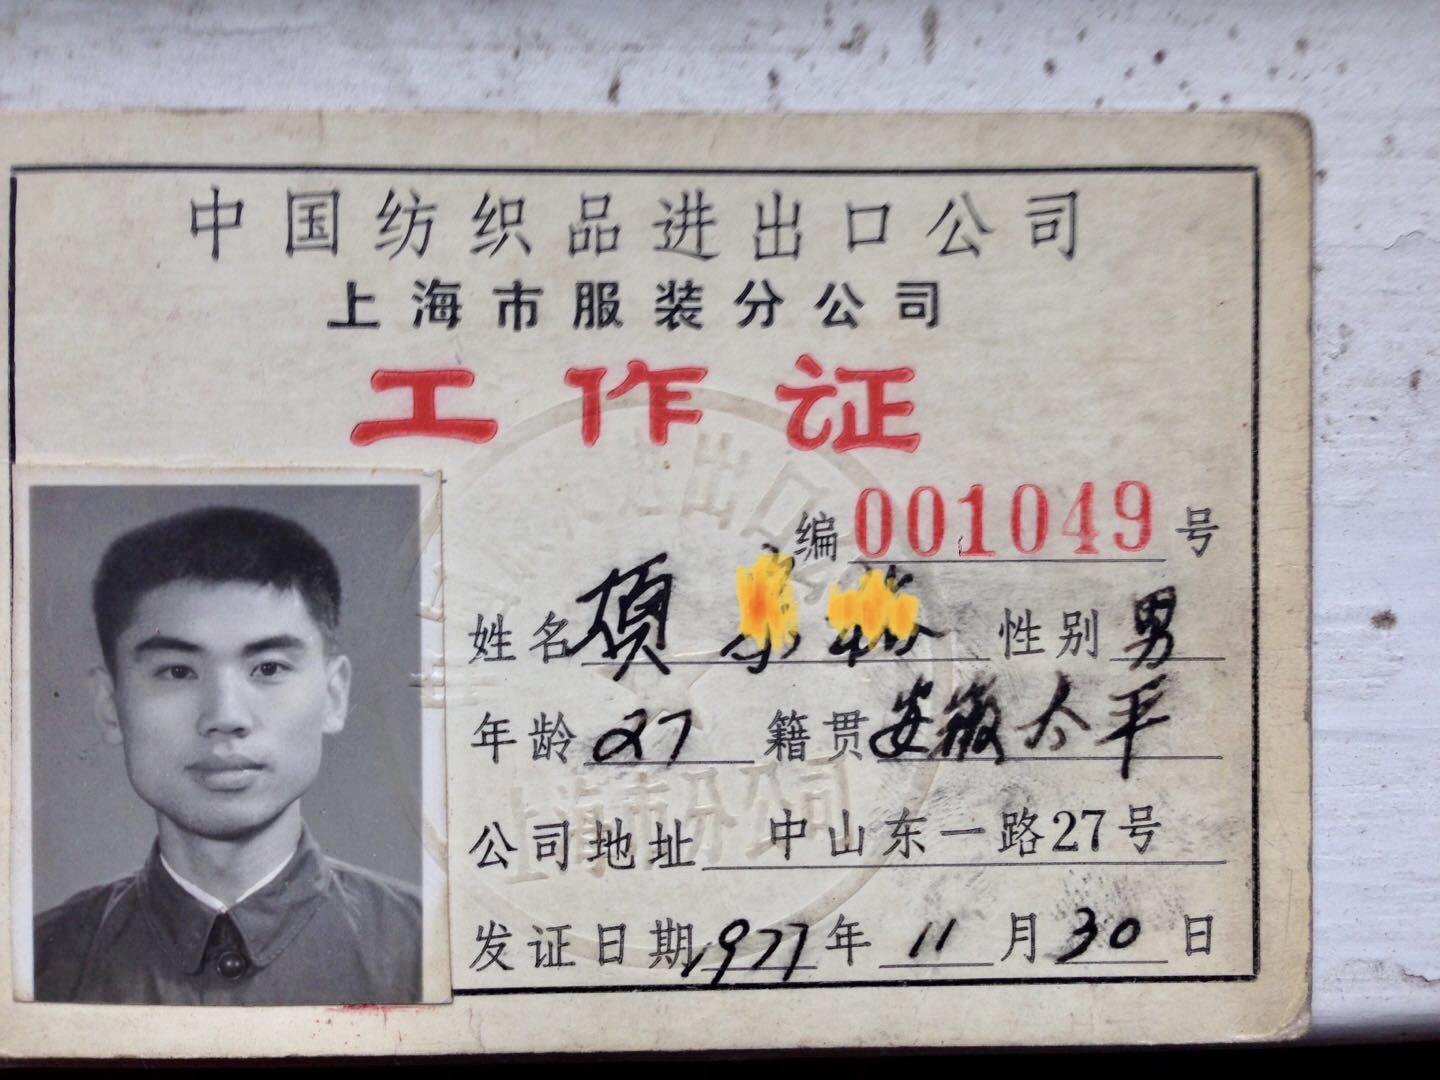 中国纺织品进出口公司
上海市服装分公司
工作证
编 001049 号
姓名 项 性别 男
年龄 27 籍贯 安徽太平
公司地址 中山东一路27号
发证日期 1977 年 11 月 30 日